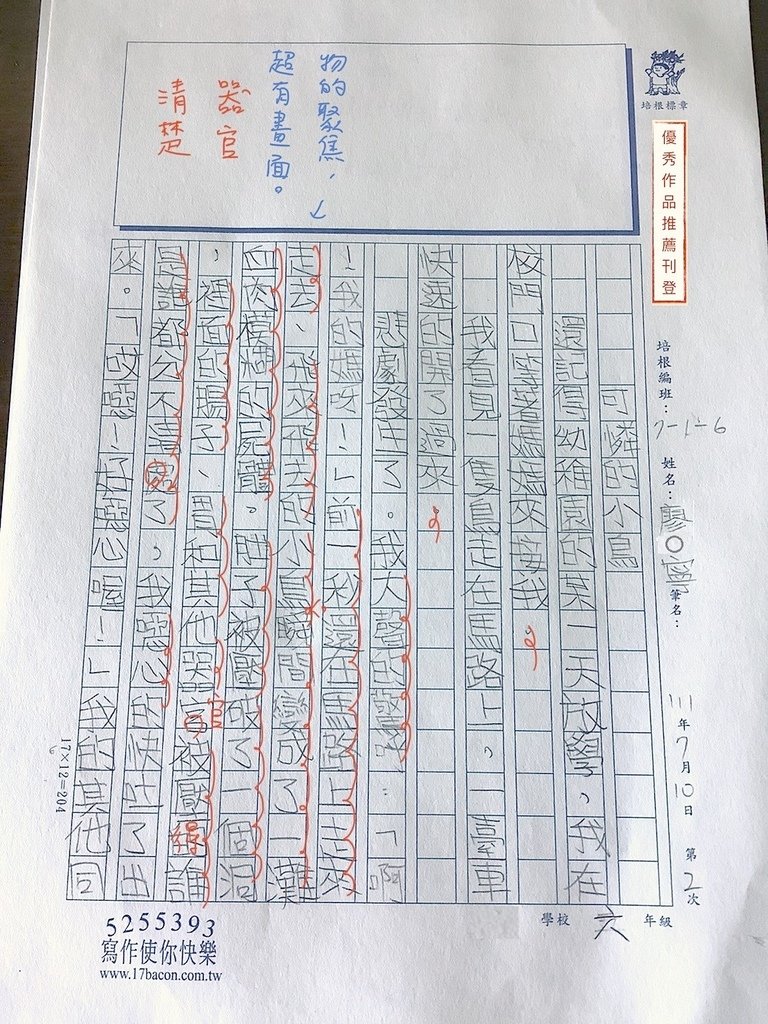 培根標章
優秀作品推薦刊登
培根編班：7-1-6
姓名：廖○寧
筆名：
111年7月10日 第2次
學校 六 年級
物的聚焦，↓
超有畫面。
器官
清楚
可憐的小鳥
還記得幼稚園的某一天放學，我在
校門口等著媽媽來接我。
我看見一隻鳥走在馬路上，一臺車
快速的開了過來。
悲劇發生了。我大聲的驚叫：「啊
！我的媽呀！」前一秒還在馬路上走來
走去、飛來飛去的小鳥瞬間變成了一灘
血肉模糊的屍體。肚子被壓破了一個洞
，裡面的腸子、胃和其他器官被壓得
是誰都分不清楚了，我噁心的快吐了出
來。「哎噁！好噁心喔！」我的其他同
17×12=204
5255393
寫作使你快樂
www.17bacon.com.tw